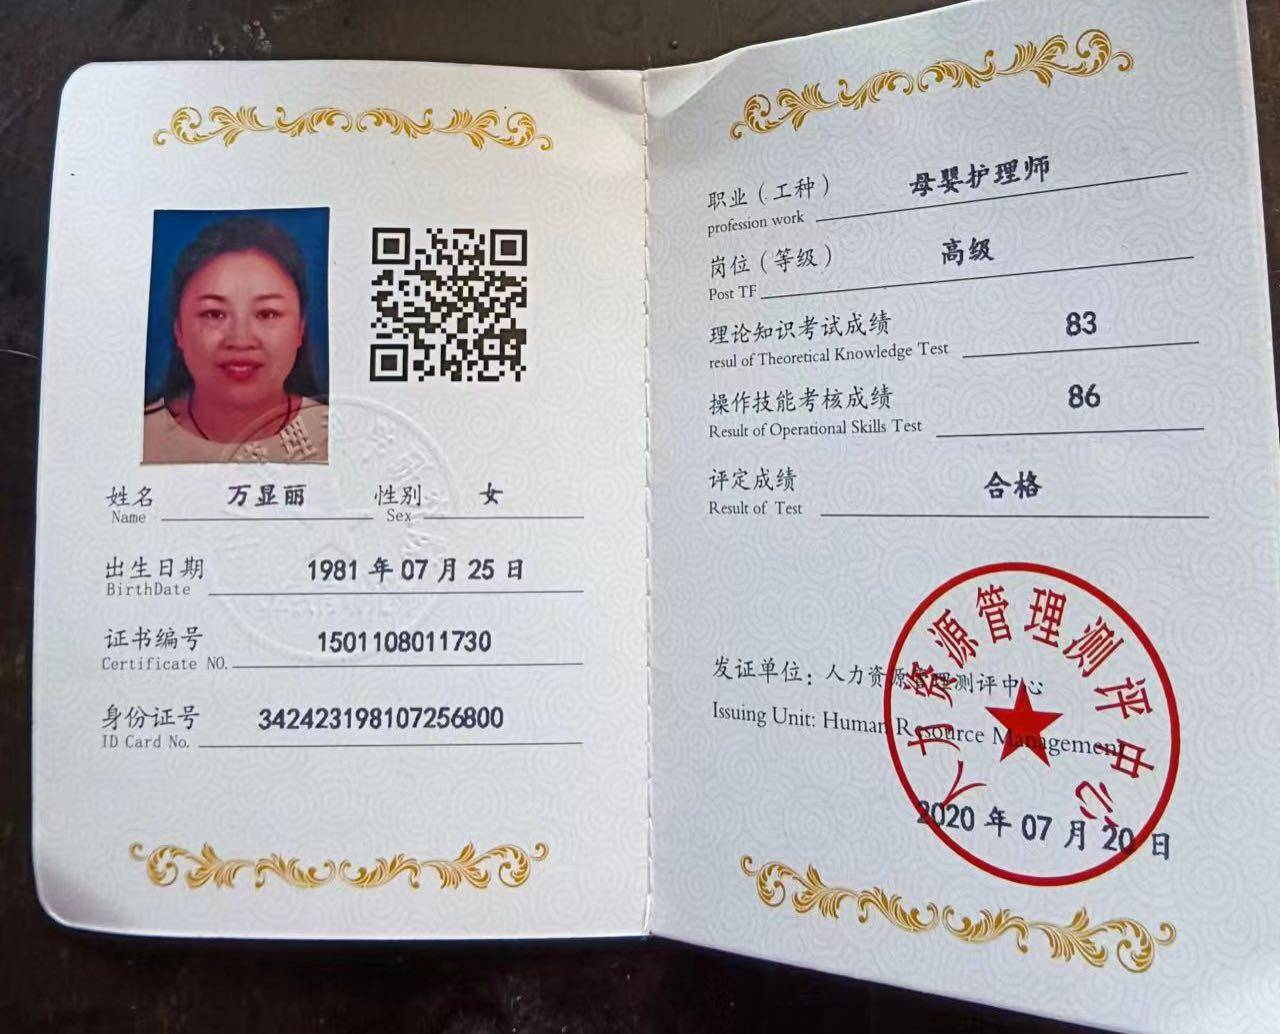 姓名 万显丽 性别 女
Name Sex
出生日期 1981年07月25日
BirthDate
证书编号 1501108011730
Certificate NO.
身份证号 342423198107256800
ID Card No.
职业（工种） 母婴护理师
profession work
岗位（等级） 高级
Post TF
理论知识考试成绩 83
resul of Theoretical Knowledge Test
操作技能考核成绩 86
Result of Operational Skills Test
评定成绩 合格
Result of Test
发证单位：人力资源管理测评中心
Issuing Unit: Human Resource Management
2020年07月20日
人力资源管理测评中心